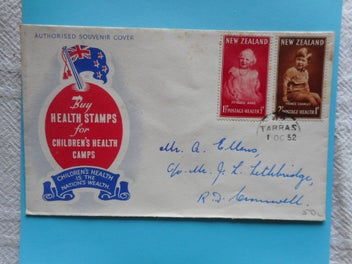 AUTHORISED SOUVENIR COVER
Buy
HEALTH STAMPS
for
CHILDREN'S HEALTH
CAMPS
CHILDREN'S HEALTH
IS THE
NATION'S WEALTH
NEW ZEALAND
PRINCESS ANNE
POSTAGE HEALTH
NEW ZEALAND
PRINCE CHARLES
POSTAGE-HEALTH
TARRAS
1 OC 52
Mr. A. Ellens,
c/o Mr. J. L. Lethbridge,
R.D. Cromwell.